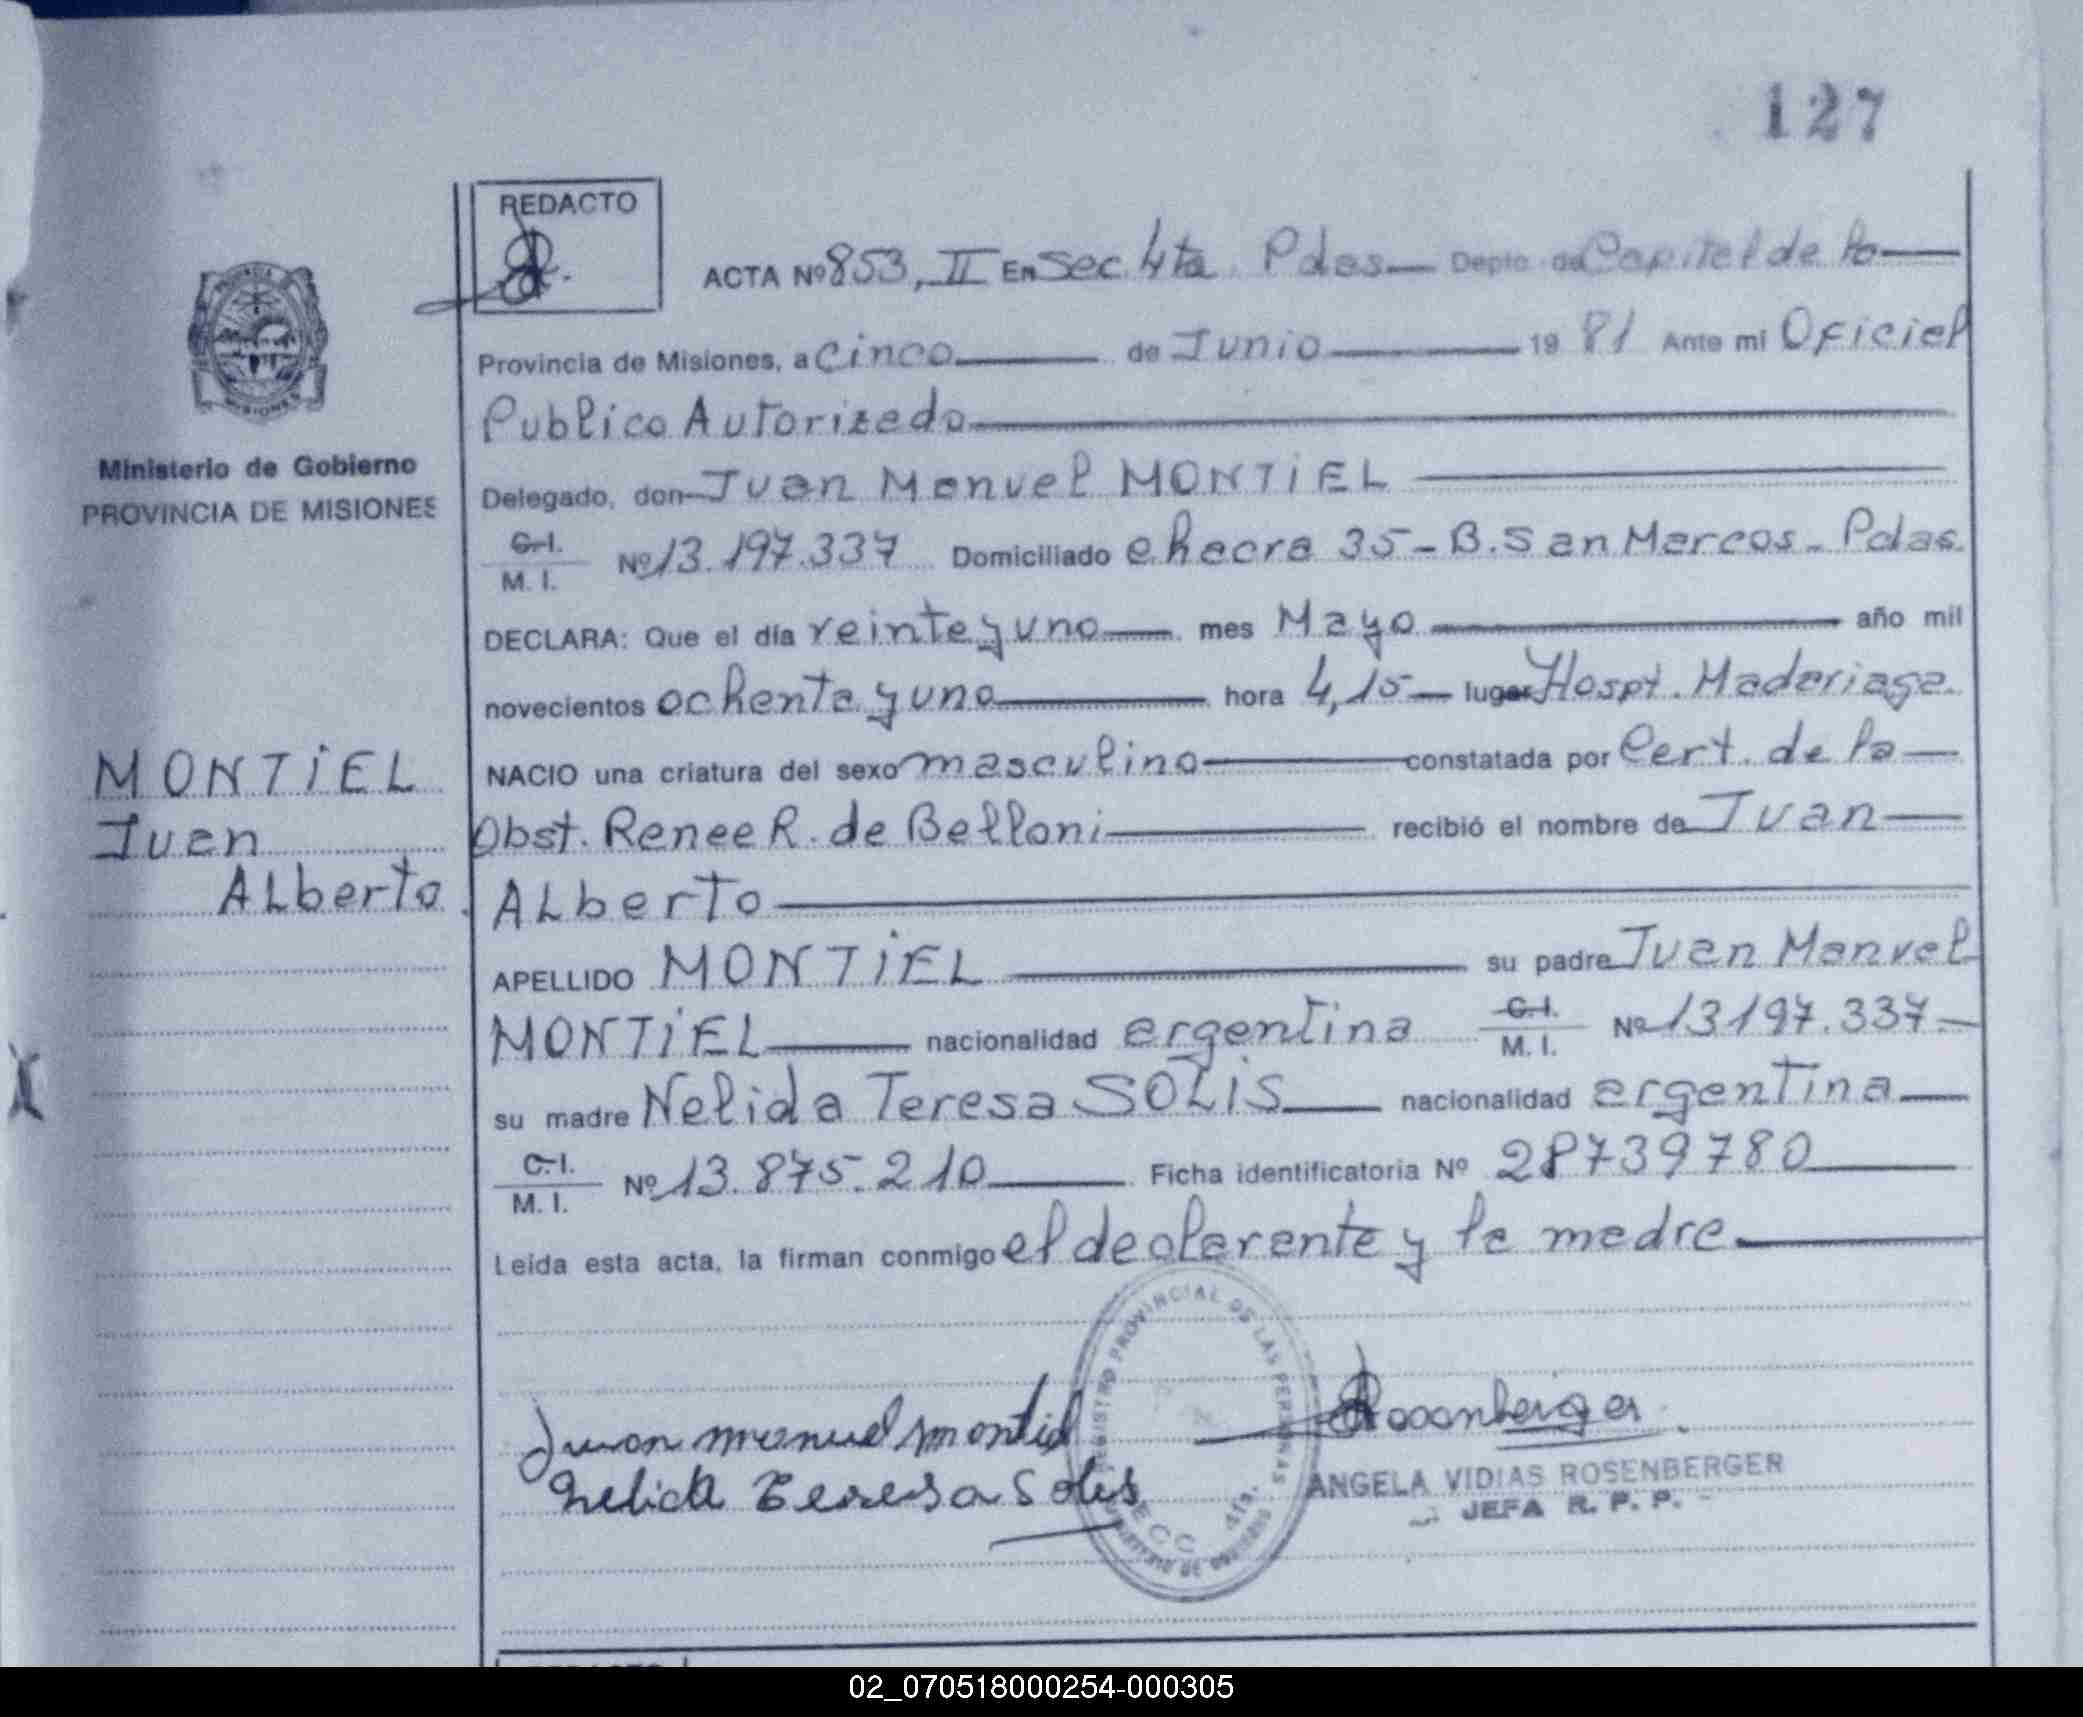 127
REDACTO
ACTA Nº 853, II En Sec 4ta Pdas Depto de Capital de la
Provincia de Misiones, a cinco de Junio 19 81 Ante mi Oficial
Publico Autorizado
Ministerio de Gobierno
PROVINCIA DE MISIONES
Delegado, don Juan Manuel MONTiEL
C.I.
M. I.
Nº 13.197.337 Domiciliado chacra 35-B. San Marcos-Pdas.
DECLARA: Que el día veinte y uno mes Mayo año mil
novecientos ochenta y uno hora 4,15 lugar Hospt. Madariaga.
NACIO una criatura del sexo masculino constatada por Cert. de la
Obst. Renee R. de Belloni recibió el nombre de Juan
ALberto
MONTiEL
Juan
ALberto.
APELLIDO MONTiEL su padre Juan Manuel
MONTiEL nacionalidad argentina C.I. M. I. Nº 13197.337
su madre Nelida Teresa SOLiS nacionalidad argentina
C.I.
M. I.
Nº 13.875.210 Ficha identificatoria Nº 28739780
Leída esta acta, la firman conmigo el declarante y la madre
REGISTRO PROVINCIAL DE LAS PERSONAS
SECC 4ta.
MINISTERIO DE GOBIERNO
Juan manuel montiel
Nelida Teresa Solis
Rosenberger
ANGELA VIDIAS ROSENBERGER
JEFA R. P. P.
02_070518000254-000305